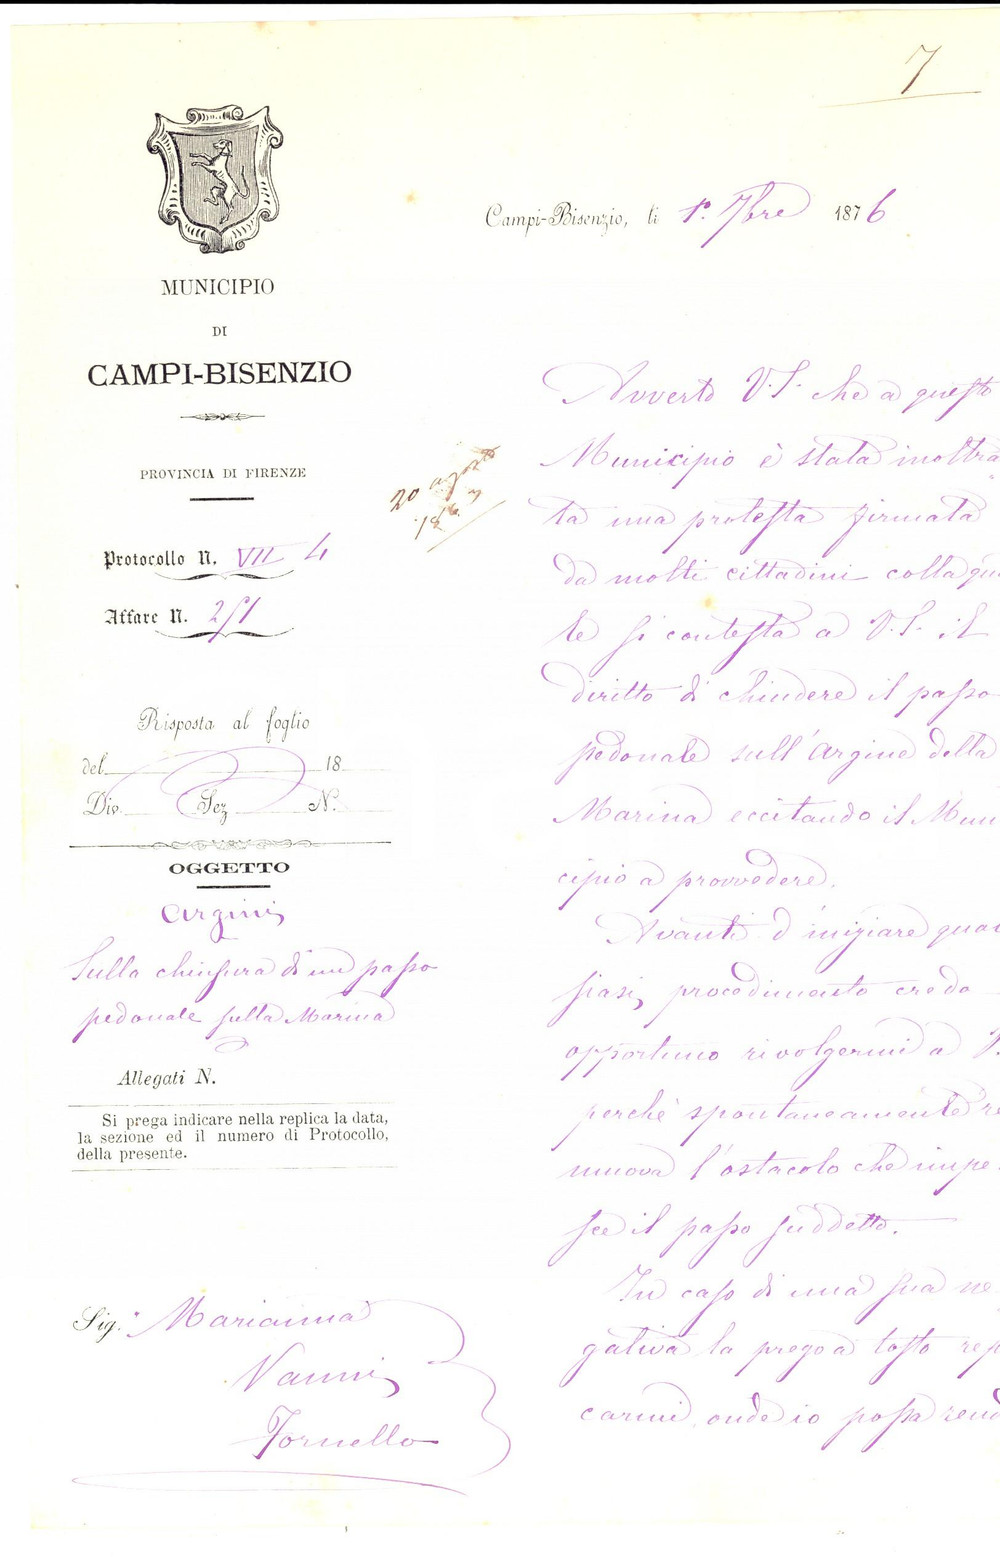 7
Campi-Bisenzio, li 1°. 7bre 1876
MUNICIPIO
DI
CAMPI-BISENZIO
PROVINCIA DI FIRENZE
20 agosto
Protocollo N. VII 4
Affare N. 251
Risposta al foglio
del 18
Div. Sez. N.
OGGETTO
Argini
Sulla chiusura di un passo
pedonale sulla Marina
Allegati N.
Si prega indicare nella replica la data,
la sezione ed il numero di Protocollo,
della presente.
Sig.ª Marianna
Vanni
Tornello
Avverto V.S. che a questo
Municipio è stata inoltra
ta una protesta firmata
da molti cittadini colla qua
le si contesta a V.S. il
diritto di chiudere il passo
pedonale sull'argine della
Marina eccitando il Muni
cipio a provvedere.
Avanti d'iniziare qual
siasi procedimento credo
opportuno rivolgermi a V.
perchè spontaneamente re
muova l'ostacolo che impe
sce il passo suddetto.
In caso di una sua ne
gativa la prego a tosto rep
carmi, onde io possa rend